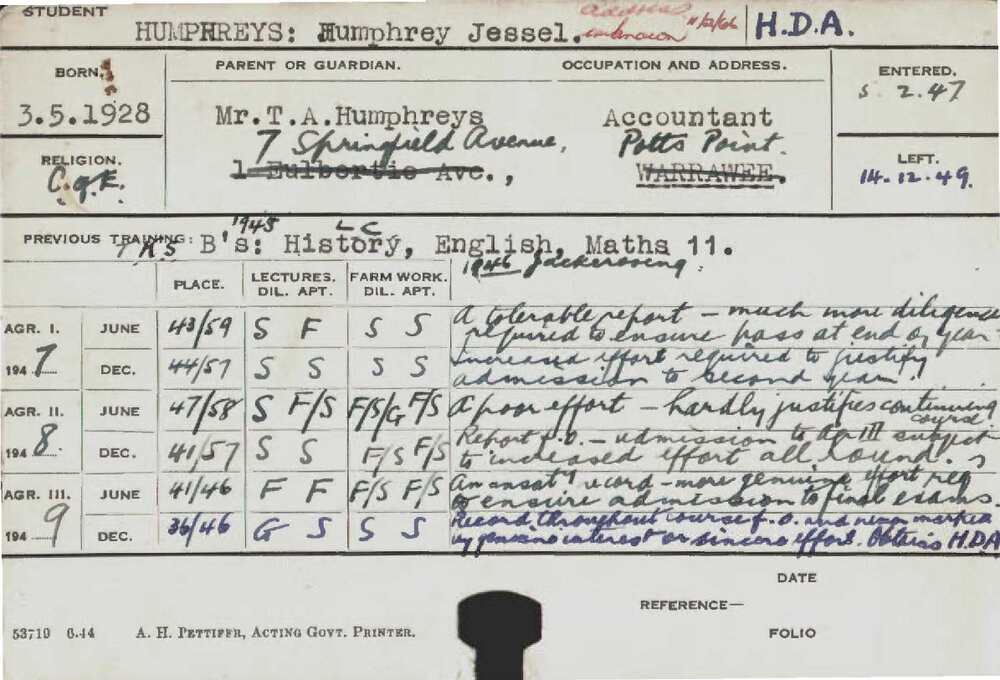 STUDENT
HUMPHREYS: Humphrey Jessel. address unknown 11/2/66 H.D.A.
BORN. PARENT OR GUARDIAN. OCCUPATION AND ADDRESS. ENTERED.
3.5.1928 Mr.T.A.Humphreys Accountant 5 2.47
7 Springfield Avenue, Potts Point.
RELIGION. LEFT.
C. of E. 1 Ave., WARRAWEE. 14.12.49.
1945 LC
PREVIOUS TRAINING: TKS B's: History, English, Maths 11.
1946 Jackerooing.
PLACE. LECTURES. FARM WORK.
DIL. APT. DIL. APT.
AGR. I. JUNE 43/59 S F S S A tolerable report – much more diligence
required to ensure pass at end of year
1947 DEC. 44/57 S S S S Increased effort required to justify
admission to second year.
AGR. II. JUNE 47/58 S F/S F/S/G F/S A poor effort – hardly justifies continuing
course.
1948. DEC. 41/57 S S F/S F/S Report f.o. – admission to Ag III subject
to increased effort all round.
AGR. III. JUNE 41/46 F F F/S F/S An unsaty record – more genuine effort req
to ensure admission to final exams
1949 DEC. 36/46 G S S S Record throughout course f.o. and never marked
by genuine interest or sincere effort. Obtains H.D.A
DATE
REFERENCE—
53719 6.44 A. H. PETTIFER, ACTING GOVT. PRINTER. FOLIO